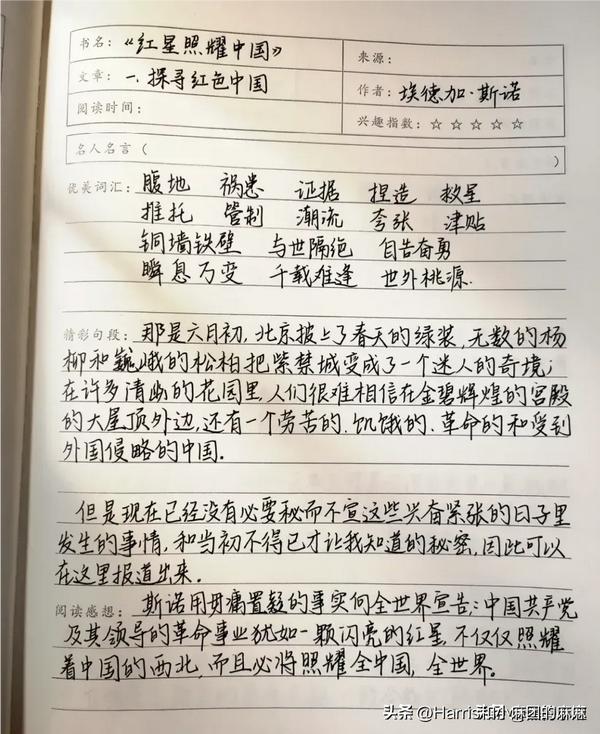 书名：《红星照耀中国》
来源：
文章：一.探寻红色中国
作者：埃德加·斯诺
阅读时间：
兴趣指数：☆☆☆☆☆
名人名言（ ）
优美词汇：腹地 祸患 证据 捏造 救星
推托 管制 潮流 夸张 津贴
铜墙铁壁 与世隔绝 自告奋勇
瞬息万变 千载难逢 世外桃源.
精彩句段：那是六月初,北京披上了春天的绿装,无数的杨
柳和巍峨的松柏把紫禁城变成了一个迷人的奇境；
在许多清幽的花园里,人们很难相信在金碧辉煌的宫殿
的大屋顶外边,还有一个劳苦的.饥饿的.革命的和受到
外国侵略的中国.
但是现在已经没有必要秘而不宣这些兴奋紧张的日子里
发生的事情,和当初不得已才让我知道的秘密,因此可以
在这里报道出来.
阅读感想：斯诺用毋庸置疑的事实向全世界宣告：中国共产党
及其领导的革命事业犹如一颗闪亮的红星,不仅仅照耀
着中国的西北,而且必将照耀全中国,全世界.